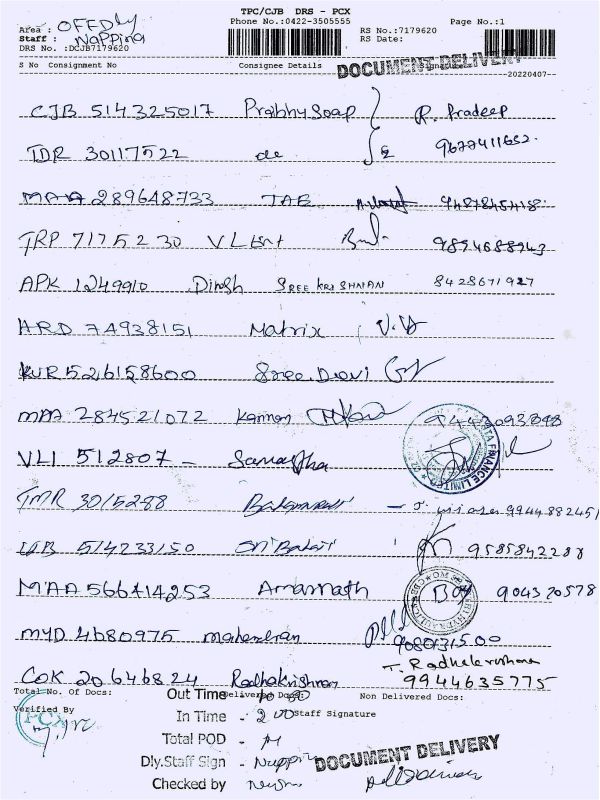 TPC/CJB DRS - PCX
Area : OFFDly Phone No.:0422-3505555 Page No.:1
Staff : Napping RS No.:7179620
DRS No. :DCJB7179620 RS Date:
S No Consignment No Consignee Details Signature
DOCUMENT DELIVERY
20220407
CJB 514325017 Prabhy Soap R. Pradeep
TDR 30117522 do 9677411652
MAA 289648733 TAB
TRP 7175230 VL 9894688943
APK 1249910 Dinesh SREE KRISHNAN 8428671927
HRD 74938151 Matrix
KUR 526158600 Sree Devi
MAA 284521072 Kannan
VLI 512807 - Samastha
FINANCE LIMITED
TMR 3015288 9944882451
514233150 Sri Balaji 9585842288
MAA 566414253 Amarnath 904320578
MYD 4680975 Mahendran 9080131500
COK 20646824 Radhakrishnan T. Radhakrishnan
9944635775
Total No. Of Docs: Delivered Docs: Non Delivered Docs:
Verified By Out Time -
PCX
In Time - 2.00 Staff Signature
Total POD -
Dly.Staff Sign -
DOCUMENT DELIVERY
Checked by